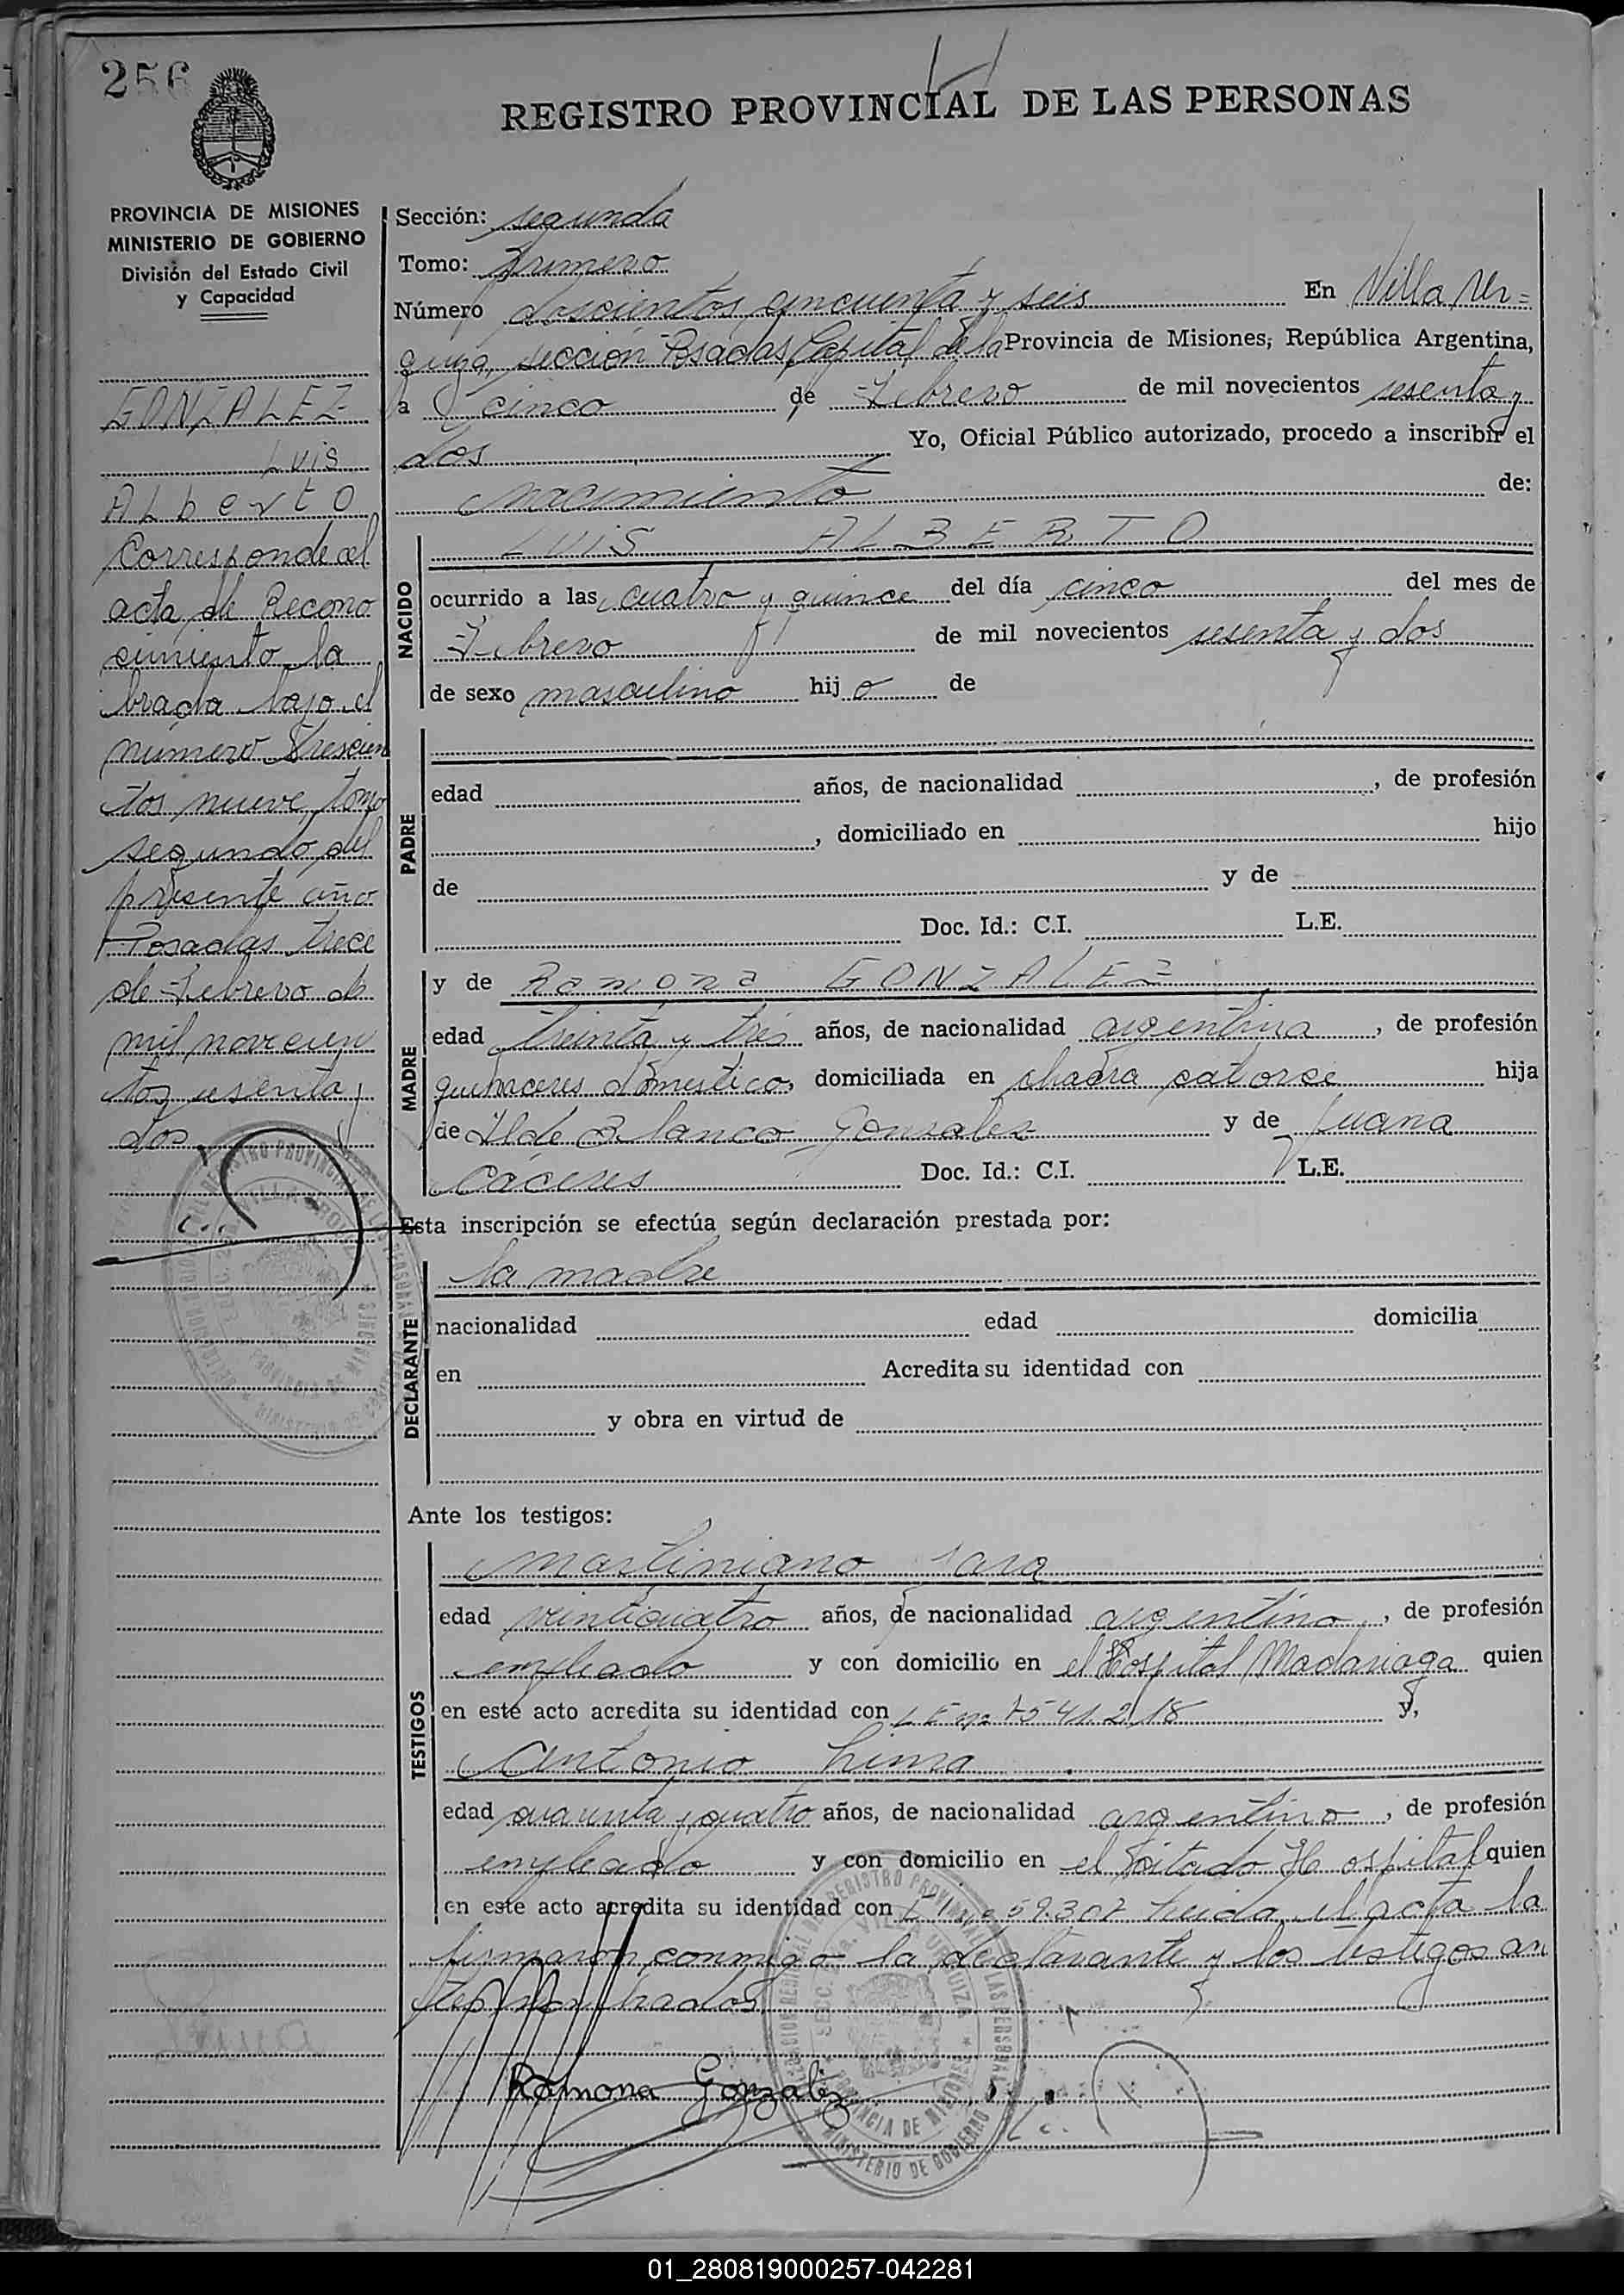 256
REGISTRO PROVINCIAL DE LAS PERSONAS
PROVINCIA DE MISIONES
MINISTERIO DE GOBIERNO
División del Estado Civil
y Capacidad
GONZALEZ
Luis
Alberto
Corresponde al
acta de Recono
cimiento la
brada bajo el
número trescien
tos nueve, tomo
segundo del
presente año
Posadas trece
de Febrero de
mil novecien
tos sesenta y
dos
Sección: segunda
Tomo: Primero
Número doscientos cincuenta y seis En Villa Ur=
quiza, sección Posadas Capital de la Provincia de Misiones, República Argentina,
a cinco de Febrero de mil novecientos sesenta y
dos Yo, Oficial Público autorizado, procedo a inscribir el
nacimiento de:
NACIDO
LUIS ALBERTO
ocurrido a las cuatro y quince del día cinco del mes de
Febrero de mil novecientos sesenta y dos
de sexo masculino hijo de
PADRE
edad años, de nacionalidad , de profesión
, domiciliado en hijo
de y de
Doc. Id.: C.I. L.E.
MADRE
y de Ramona GONZALEZ
edad treinta y tres años, de nacionalidad argentina, de profesión
quehaceres domesticos domiciliada en chacra catorce hija
de Ilde Blanco Gonzalez y de Juana
Cáceres Doc. Id.: C.I. L.E.
Esta inscripción se efectúa según declaración prestada por:
DECLARANTE
la madre
nacionalidad edad domicilia
en Acredita su identidad con
y obra en virtud de
Ante los testigos:
TESTIGOS
Martiniano Jara
edad veinticuatro años, de nacionalidad argentino, de profesión
empleado y con domicilio en el Hospital Madariaga quien
en este acto acredita su identidad con L E nº 7541218 y,
Antonio Lima
edad cuarenta y cuatro años, de nacionalidad argentino, de profesión
empleado y con domicilio en el citado Hospital quien
en este acto acredita su identidad con 59.307 Leida el acta la
firmaron conmigo la declarante y los testigos an
tes nombrados
Ramona Gonzalez
01_280819000257-042281